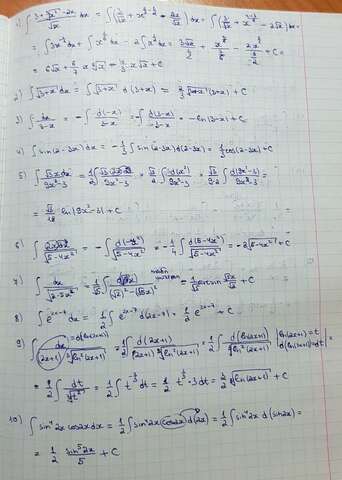 1) ∫ (3+∛x² - 2x)/√x dx = ∫ (3/√x + x^(2/3-1/2) - 2x/√x) dx = ∫ (3/√x + x^(1/6) - 2√x) dx =
= ∫ 3x^(-1/2) dx + ∫ x^(1/6) dx - 2 ∫ x^(1/2) dx = 3√x/(1/2) + x^(7/6)/(7/6) - 2x^(3/2)/(3/2) + C =
= 6√x + 6/7 x ⁶√x - 4/3 x √x + C
2) ∫ √(3+x) dx = ∫ √(3+x) d(3+x) = 2/3 (3+x) + C
3) ∫ dx/(3-x) = -∫ d(-x)/(3-x) = -∫ d(3-x)/(3-x) = -ln(3-x) + C
4) ∫ sin(2-3x) dx = -1/3 ∫ sin(2-3x) d(2-3x) = 1/3 cos(2-3x) + C
5) ∫ √3 x dx/(9x²-3) = = √3/2 ∫ d(x²)/(9x²-3) = √3/(9·2) ∫ d(9x²-3)/(9x²-3) =
= √3/18 ln|9x²-3| + C
6) ∫ 2x dx/√(5-4x²) = -∫ d(-x²)/√(5-4x²) = -1/4 ∫ d(5-4x²)/√(5-4x²) = + C
7) ∫ dx/√(2-5x²) = 1/√5 ∫ d(√5x)/√((√2)²-(√5x)²) = 1/√5 arcsin √5x/√2 + C
8) ∫ e^(2x-7) dx = 1/2 ∫ e^(2x-7) d(2x-7) = 1/2 e^(2x-7) + C
9) ∫ dx/((2x+1) ∛ln²(2x+1)) = 1/2 ∫ d(2x+1)/((2x+1) ∛ln²(2x+1)) = 1/2 ∫ d(ln(2x+1))/∛ln²(2x+1) = |ln(2x+1) = t d(ln(2x+1)) = dt| =
= 1/2 ∫ dt/∛t² = 1/2 ∫ t^(-2/3) dt = 1/2 t^(1/3) · 3 dt = 3/2 ∛ln(2x+1) + C
10) ∫ sin⁴2x cos2x dx = 1/2 ∫ sin⁴2x cos2x d(2x) = 1/2 ∫ sin⁴2x d(sin2x) =
= 1/2 sin⁵2x/5 + C